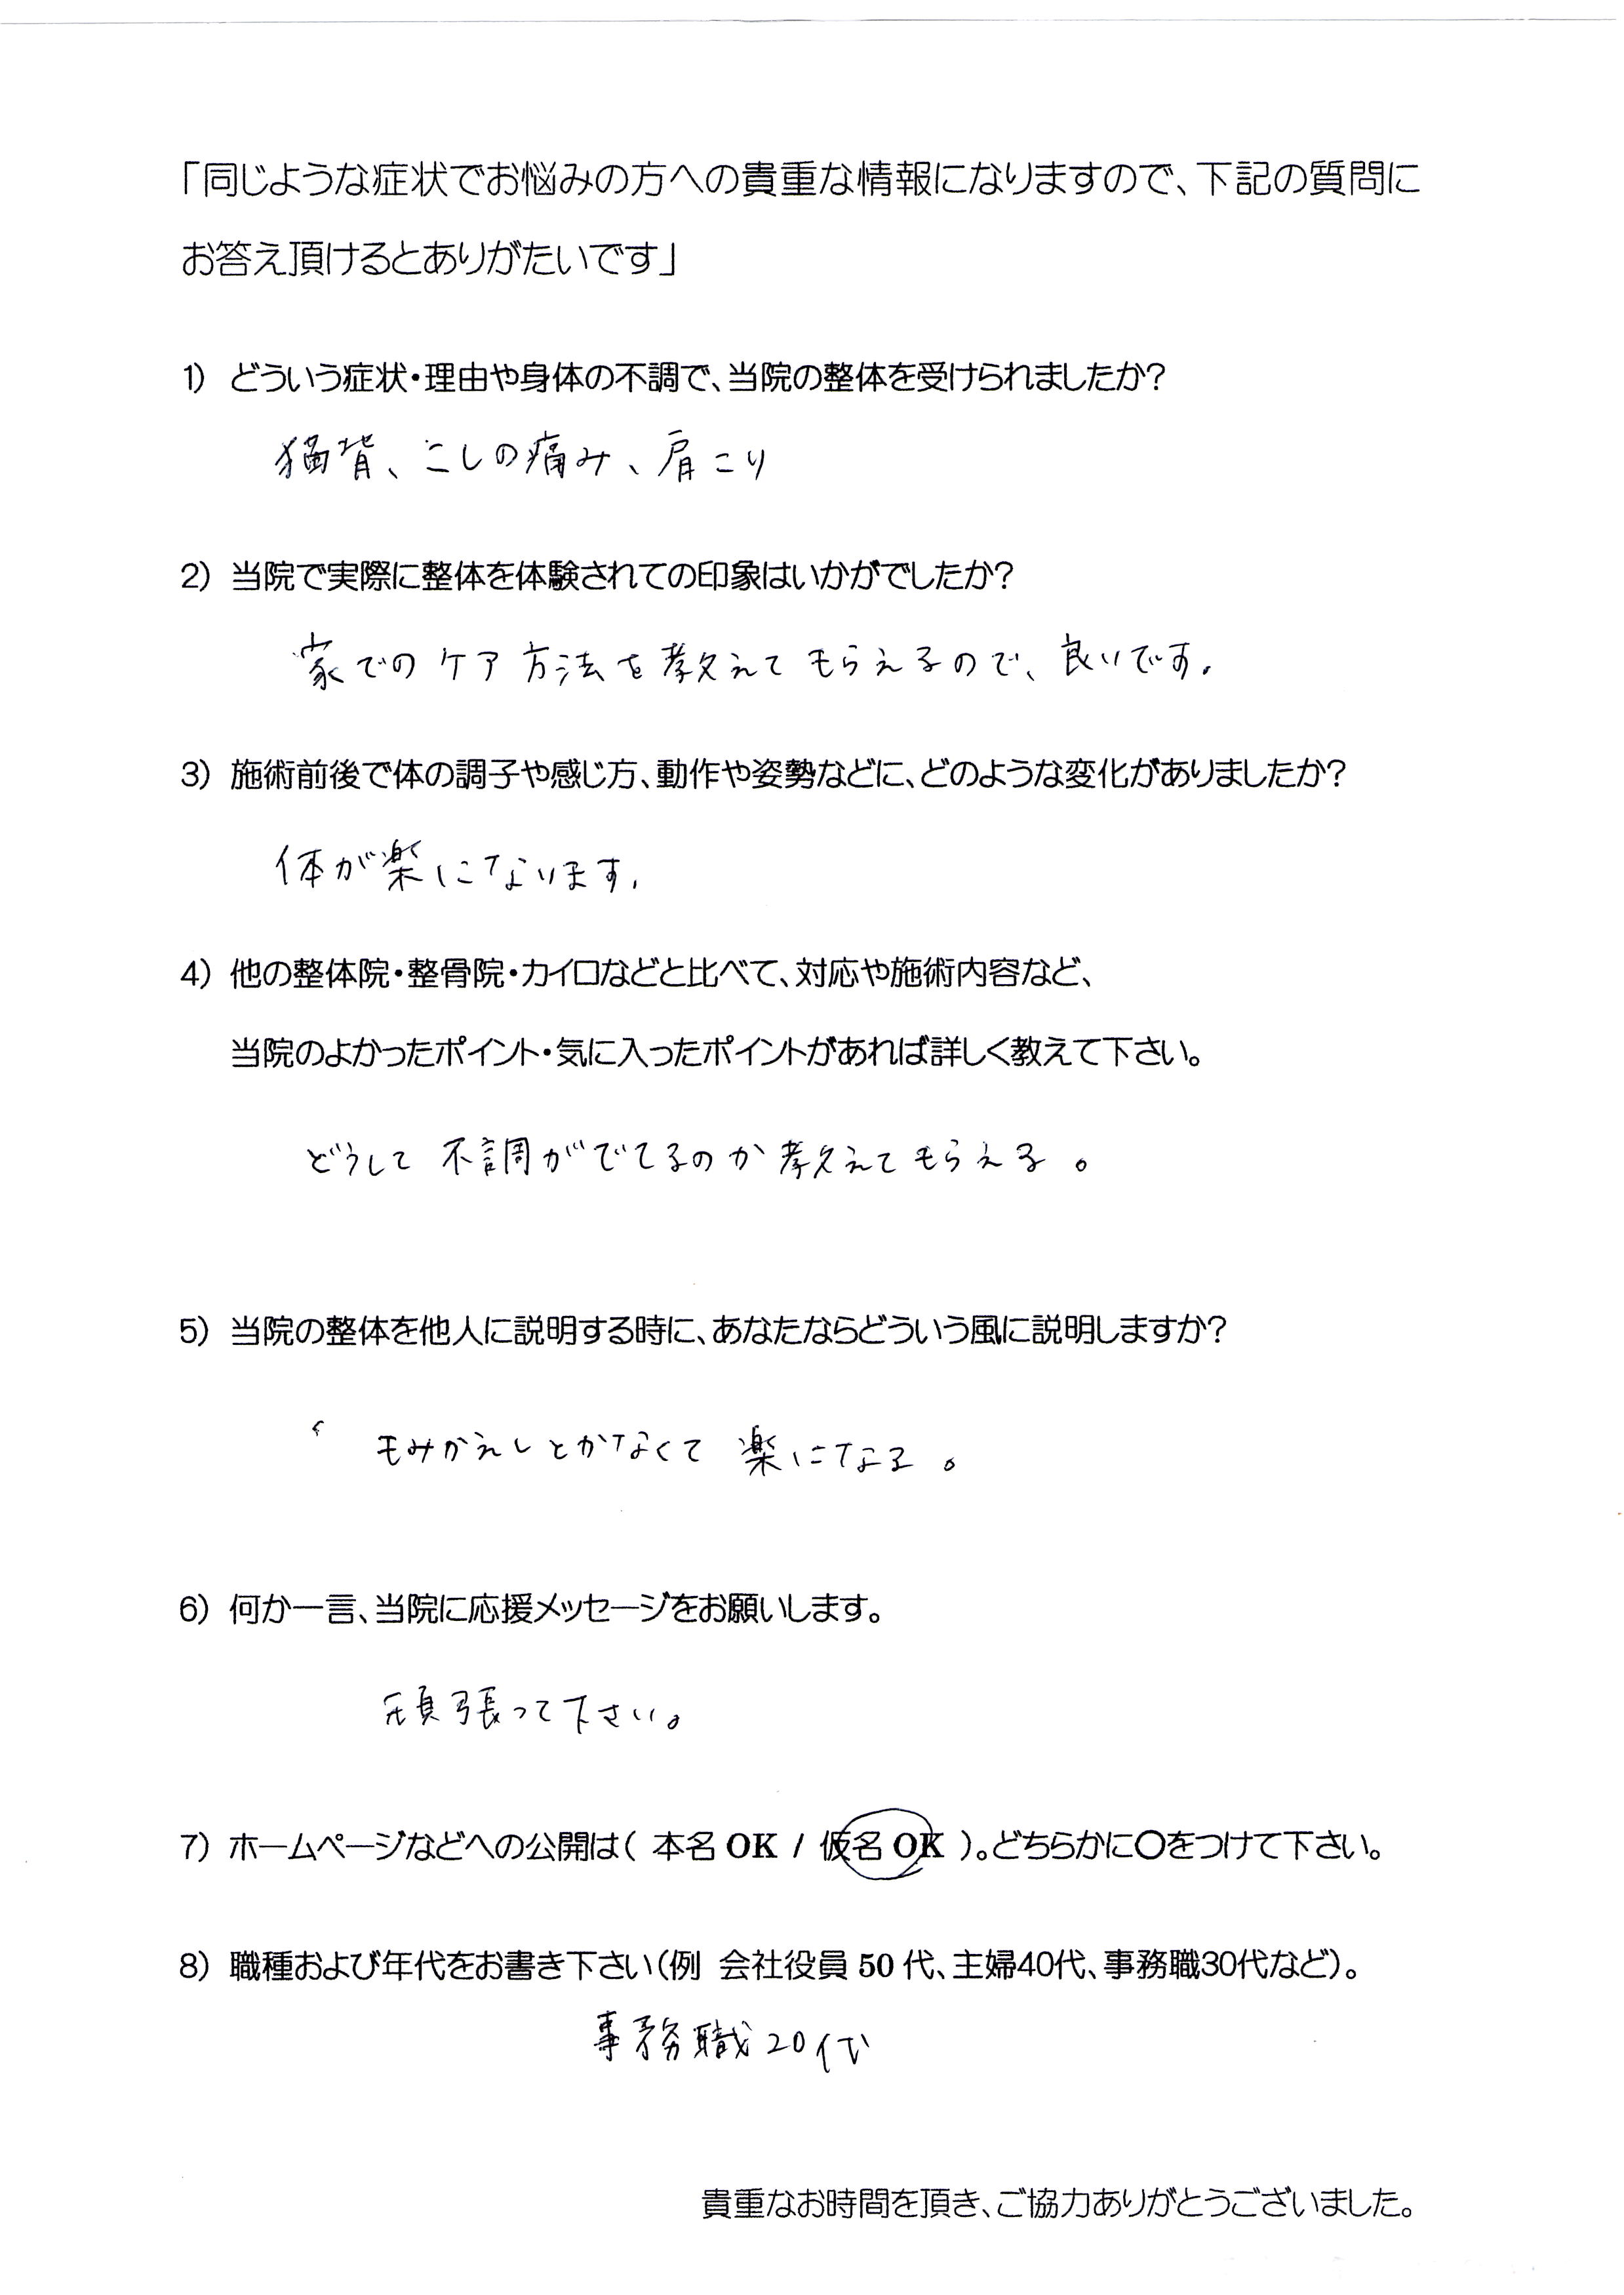 「同じような症状でお悩みの方への貴重な情報になりますので、下記の質問に
お答え頂けるとありがたいです」
1) どういう症状・理由や身体の不調で、当院の整体を受けられましたか?
猫背、こしの痛み、肩こり
2) 当院で実際に整体を体験されての印象はいかがでしたか?
家でのケア方法を教えてもらえるので、良いです。
3) 施術前後で体の調子や感じ方、動作や姿勢などに、どのような変化がありましたか?
体が楽になります。
4) 他の整体院・整骨院・カイロなどと比べて、対応や施術内容など、
当院のよかったポイント・気に入ったポイントがあれば詳しく教えて下さい。
どうして不調がでてるのか教えてもらえる。
5) 当院の整体を他人に説明する時に、あなたならどういう風に説明しますか?
もみかえしとかなくて楽になる。
6) 何か一言、当院に応援メッセージをお願いします。
頑張って下さい。
7) ホームページなどへの公開は( 本名 OK / 仮名 OK )。どちらかに〇をつけて下さい。
8) 職種および年代をお書き下さい(例 会社役員 50 代、主婦40代、事務職30代など)。
事務職20代
貴重なお時間を頂き、ご協力ありがとうございました。